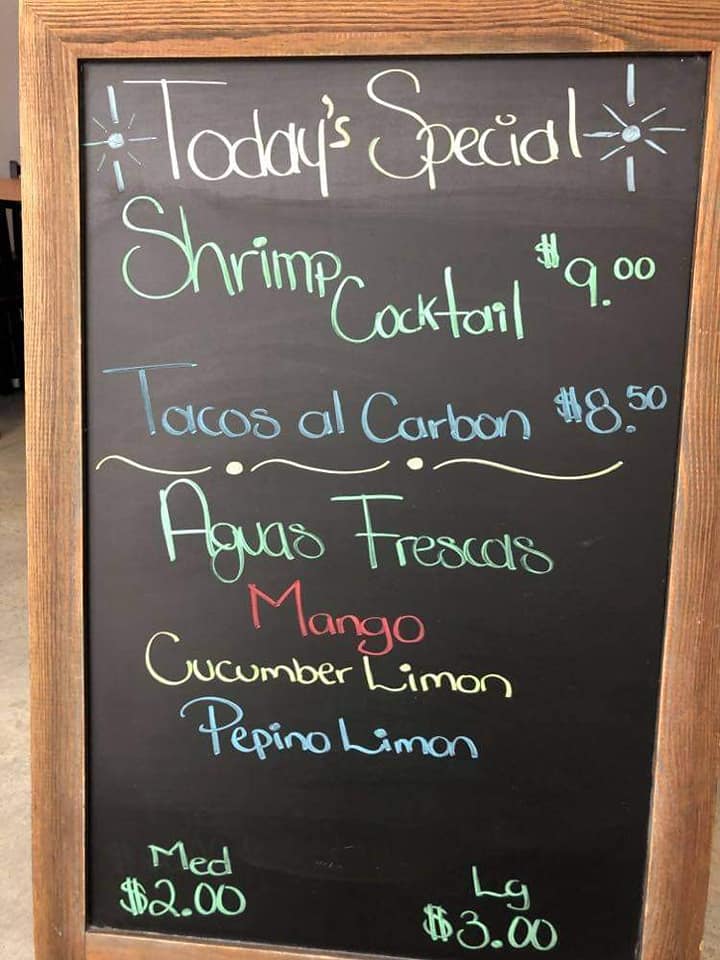 Today's Special
Shrimp Cocktail $9.00
Tacos al Carbon $8.50
Aguas Frescas
Mango
Cucumber Limon
Pepino Limon
Med Lg
$2.00 $3.00